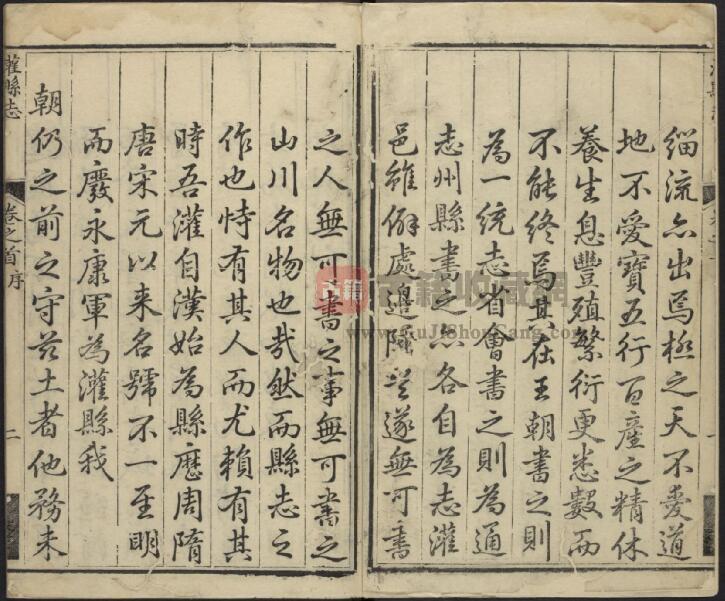 緇流亦出焉極之天不愛道
地不愛寶五行百產之精休
養生息豐殖繁衍更悉數而
不能終焉其在王朝書之則
為一統志省會書之則為通
志州縣書之亦各自為志灌
邑雖僻處邊陲豈遂無可書
之人無可書之事無可書之
山川名物也哉然而縣志之
作也恃有其人而尤賴有其
時吾灌自漢始為縣歷周隋
唐宋元以來名號不一至明
而廢永康軍為灌縣我
朝仍之前之守茲土者他務未
灌縣志
卷之首序
二
古籍
古籍收藏網
www.GuJiShouCang.com